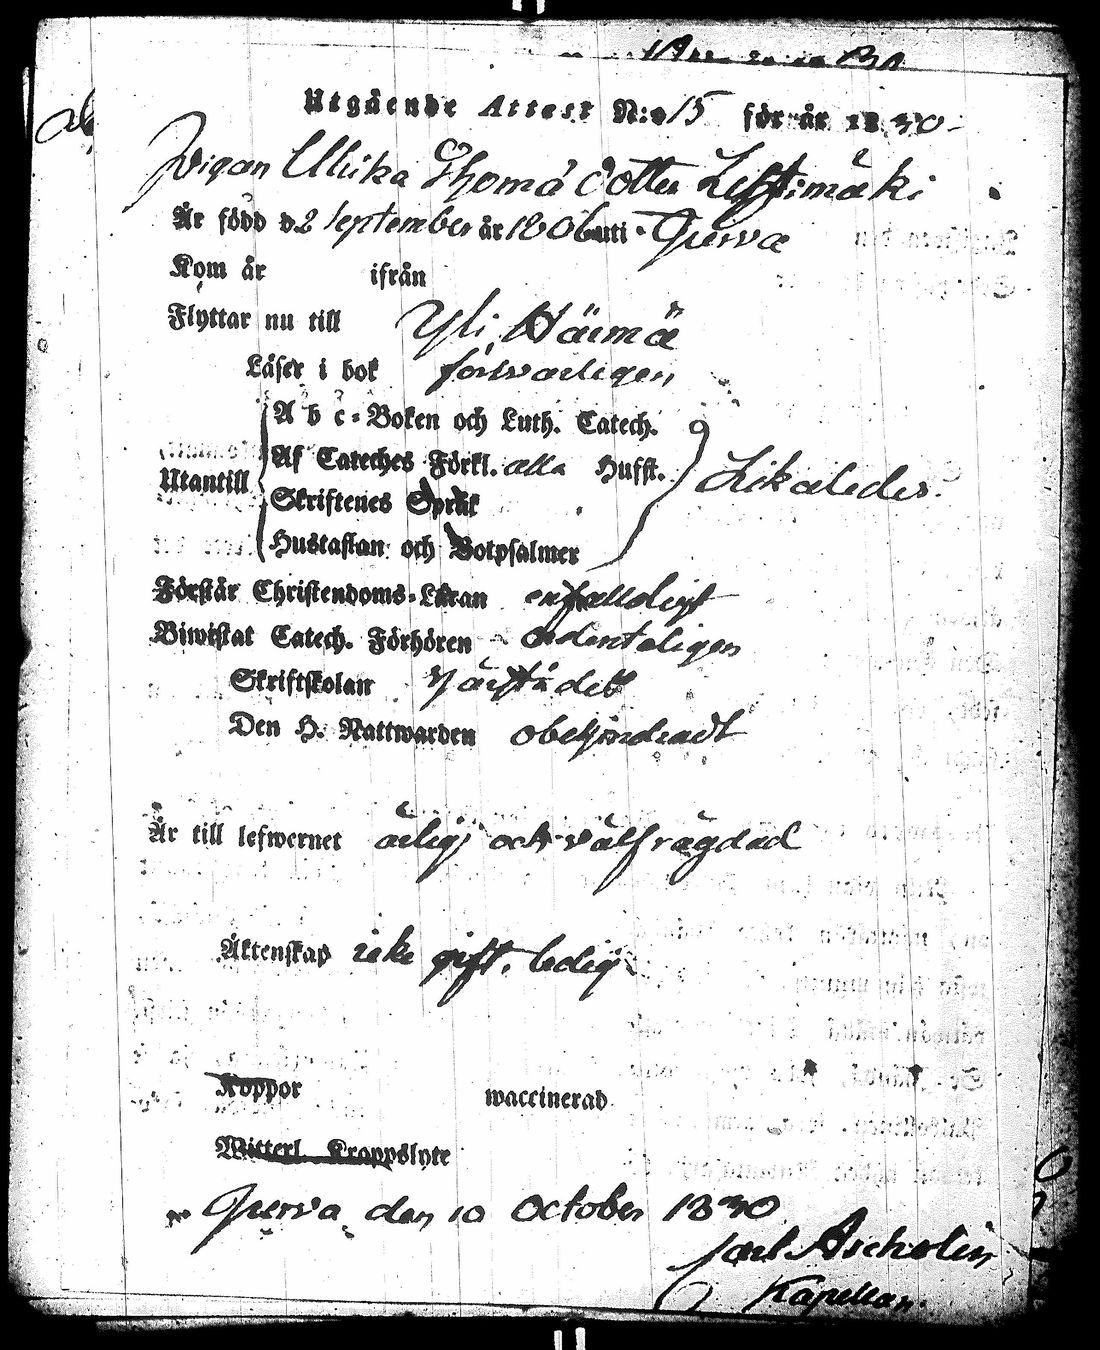 Utgående Attest N:o 15 för år 1830.
Pigan Ulrika Thomædotter Lehtimäki
Är född d. 2 September år 1806 uti Purva
Kom år ifrån
Flyttar nu till Yli Härmä
Läser i bok försvarligen
A b c-Boken och Luth. Catech.
Af Cateches Förkl. alla Hufst.
Utantill
Skriftenes Språk
Likaledes.
Hustaflan och Botpsalmer
Förstår Christendoms-Läran enfalldigt
Biwistat Catech. Förhören ordenteligen
Skriftskolan
Den H. Nattwarden obehindradt
Är till lefwernet ärlig och välfrägdad
Äktenskap icke gift, ledig
Koppor waccinerad
Witterl. Kroppslyte
den 10 October 1830
Carl Ascholin
Kapellan.